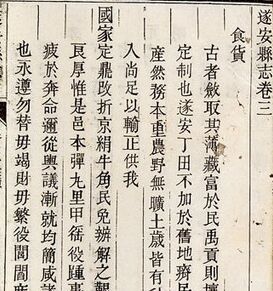 遂安縣志卷三
食貨
古者斂取其薄藏富於民禹貢則壤
定制也遂安丁田不加於舊地瘠民
產然務本重農野無曠土歲皆有
入尚足以輸正供我
國家定鼎改折京絹牛角民免辦解之艱
艮厚惟是邑本彈九里甲徭役踵事
疲於奔命邇從輿議漸就均簡咸
也永遵勿替毋竭則毋繁役閭閻